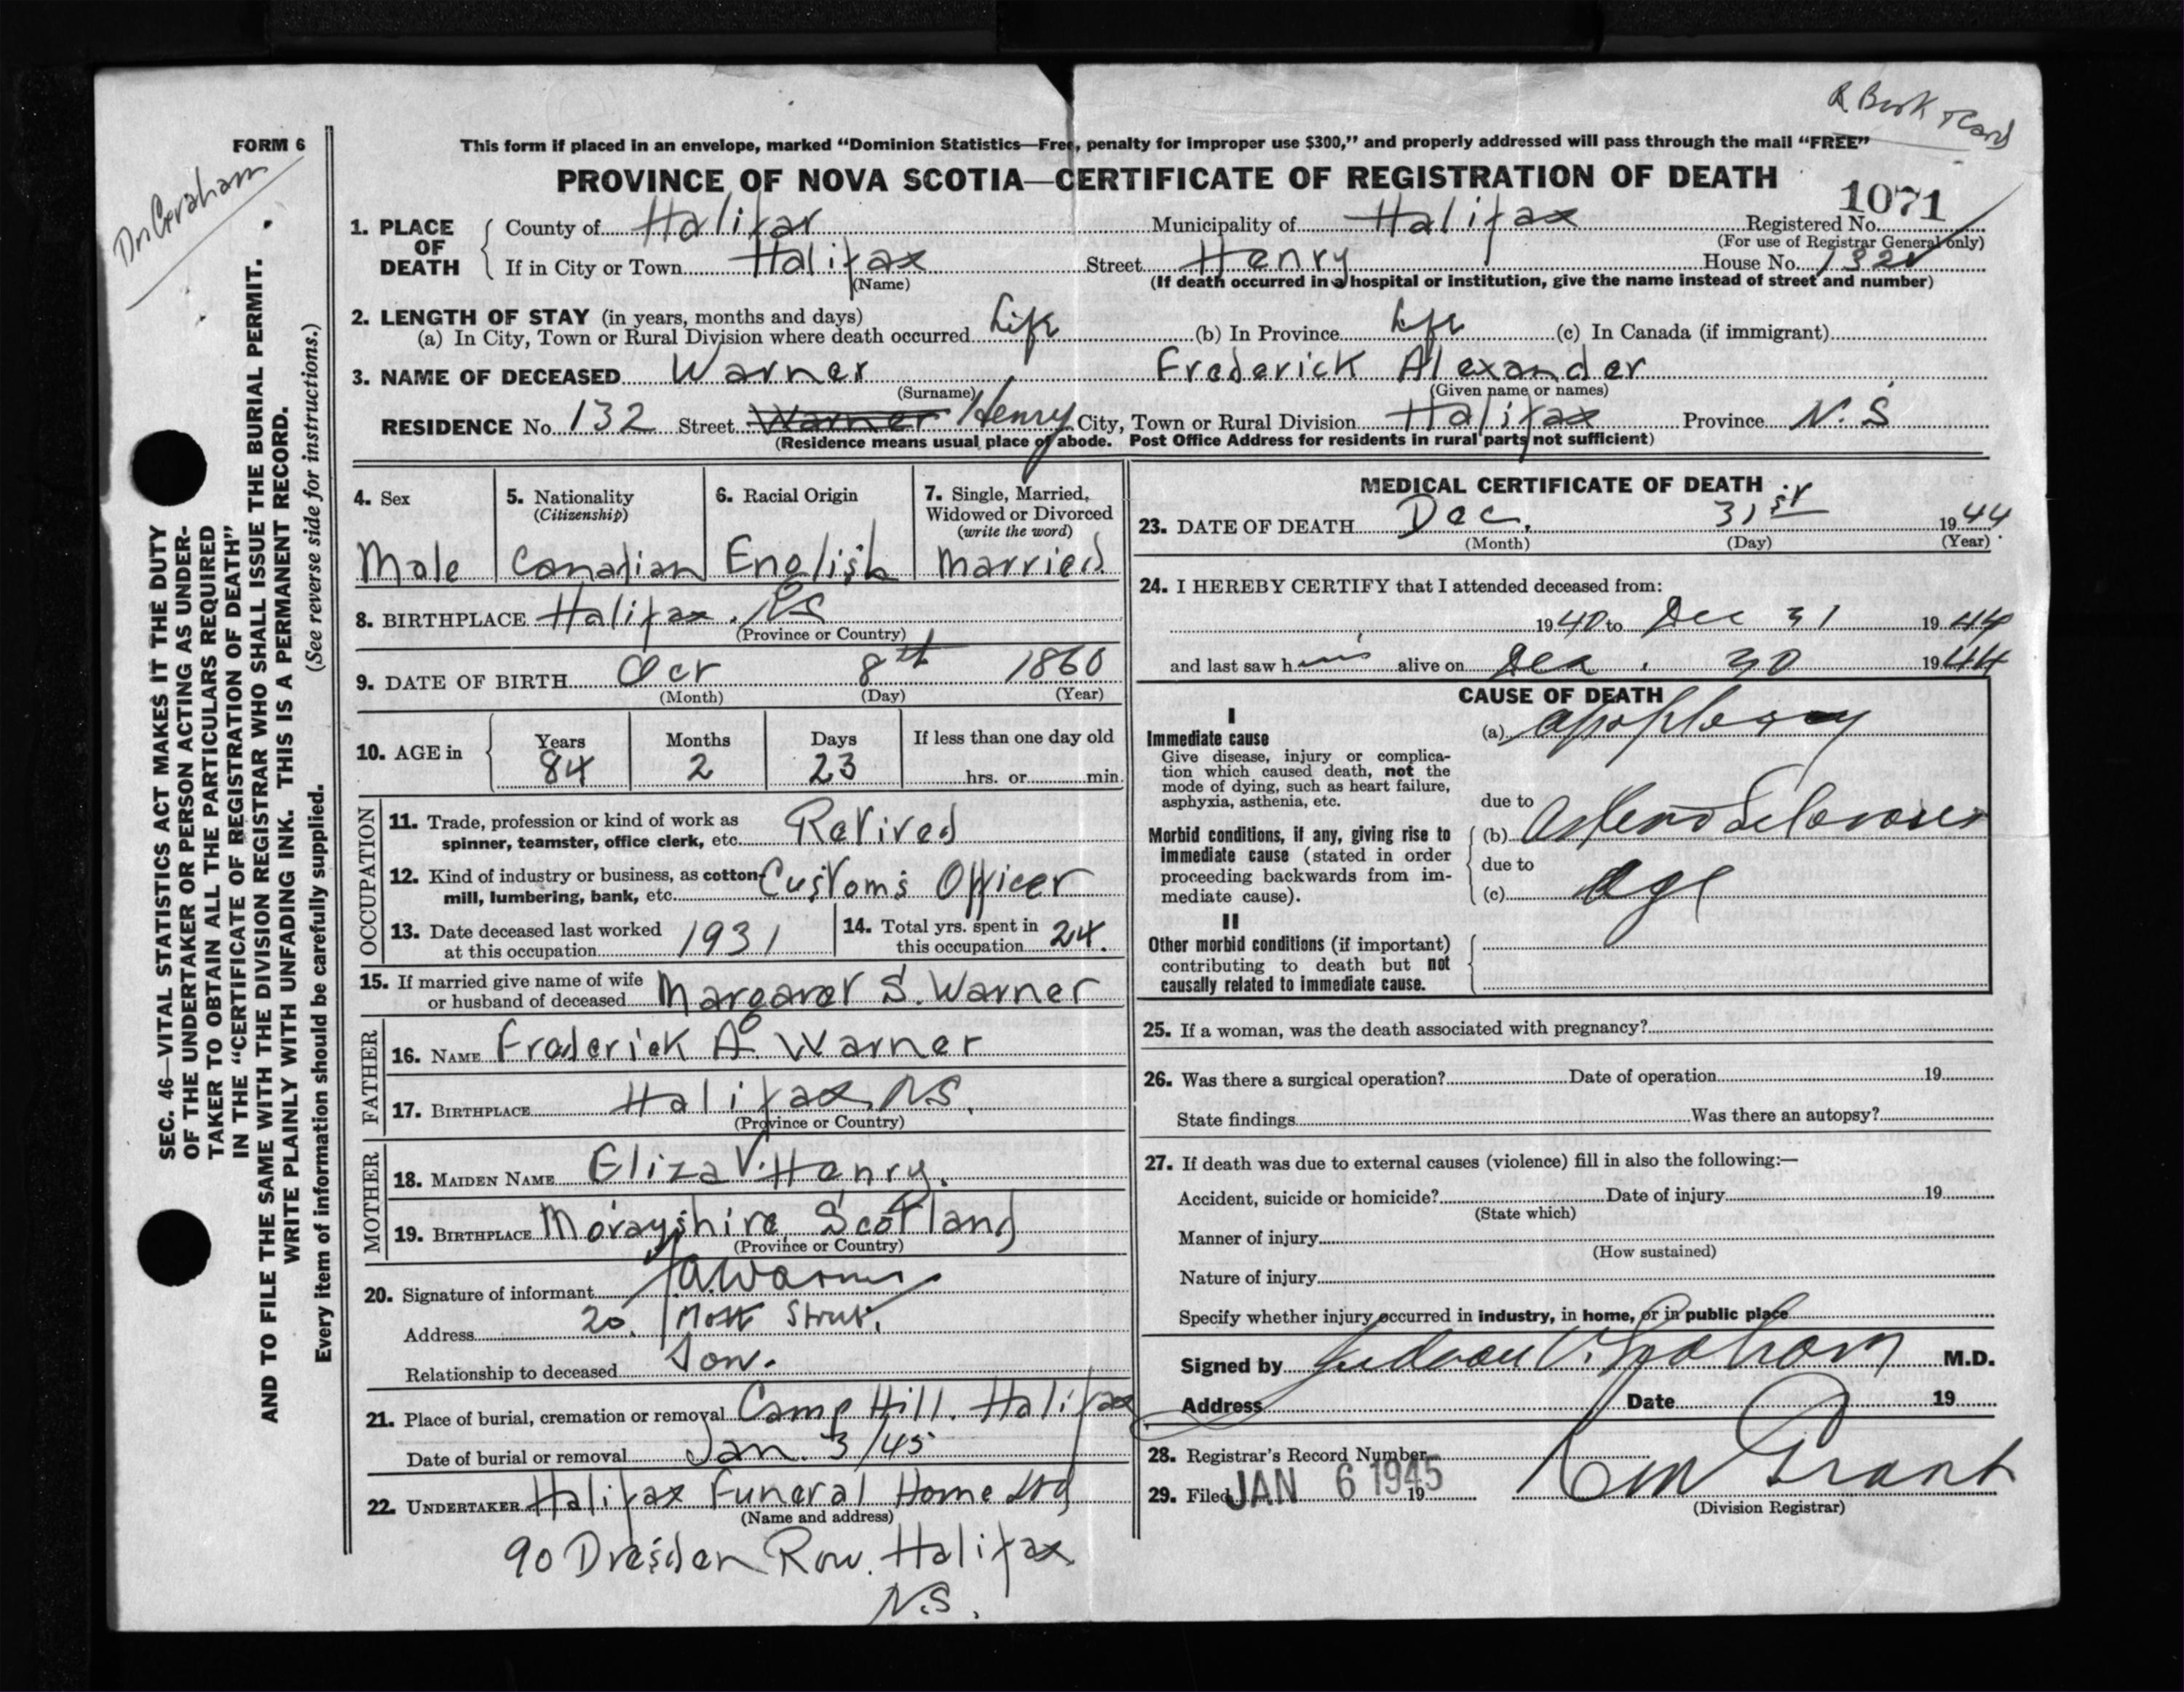 R. Book & Card
FORM 6
Dr. Graham
This form if placed in an envelope, marked “Dominion Statistics—Free, penalty for improper use $300,” and properly addressed will pass through the mail “FREE”
PROVINCE OF NOVA SCOTIA—CERTIFICATE OF REGISTRATION OF DEATH
1071
1. PLACE OF DEATH
County of Halifax Municipality of Halifax Registered No.
(For use of Registrar General only)
If in City or Town Halifax Street Henry House No. 132
(Name) (If death occurred in a hospital or institution, give the name instead of street and number)
2. LENGTH OF STAY (in years, months and days)
(a) In City, Town or Rural Division where death occurred Life (b) In Province Life (c) In Canada (if immigrant)
3. NAME OF DECEASED Warner Frederick Alexander
(Surname) (Given name or names)
RESIDENCE No. 132 Street Warner Henry City, Town or Rural Division Halifax Province N.S
(Residence means usual place of abode. Post Office Address for residents in rural parts not sufficient)
4. Sex
Male
5. Nationality
(Citizenship)
Canadian
6. Racial Origin
English
7. Single, Married,
Widowed or Divorced
(write the word)
Married
8. BIRTHPLACE Halifax. NS
(Province or Country)
9. DATE OF BIRTH Oct 8th 1860
(Month) (Day) (Year)
10. AGE in
Years Months Days If less than one day old
84 2 23 hrs. or min.
OCCUPATION
11. Trade, profession or kind of work as
spinner, teamster, office clerk, etc. Retired
12. Kind of industry or business, as cotton-
mill, lumbering, bank, etc. Customs Officer
13. Date deceased last worked
at this occupation 1931
14. Total yrs. spent in
this occupation 24.
15. If married give name of wife
or husband of deceased Margaret S. Warner
FATHER
16. NAME Frederick A. Warner
17. BIRTHPLACE Halifax N.S.
(Province or Country)
MOTHER
18. MAIDEN NAME Eliza V. Henry.
19. BIRTHPLACE Morayshire Scotland
(Province or Country)
20. Signature of informant A Warner
Address 20. Mott Street.
Relationship to deceased Son.
21. Place of burial, cremation or removal Camp Hill. Halifax
Date of burial or removal Jan. 3/45
22. UNDERTAKER Halifax Funeral Home Ltd
(Name and address)
90 Dresden Row. Halifax
N.S.
MEDICAL CERTIFICATE OF DEATH
23. DATE OF DEATH Dec. 31st 1944
(Month) (Day) (Year)
24. I HEREBY CERTIFY that I attended deceased from:
1940 to Dec 31 1944
and last saw him alive on Dec. 30 1944
CAUSE OF DEATH
I
Immediate cause
Give disease, injury or complica-
tion which caused death, not the
mode of dying, such as heart failure,
asphyxia, asthenia, etc.
(a) apoplexy
due to
Morbid conditions, if any, giving rise to
immediate cause (stated in order
proceeding backwards from im-
mediate cause).
(b) Arterio Sclerosis
due to
(c) age
II
Other morbid conditions (if important)
contributing to death but not
causally related to immediate cause.
25. If a woman, was the death associated with pregnancy?
26. Was there a surgical operation? Date of operation 19
State findings Was there an autopsy?
27. If death was due to external causes (violence) fill in also the following:—
Accident, suicide or homicide? Date of injury 19
(State which)
Manner of injury
(How sustained)
Nature of injury
Specify whether injury occurred in industry, in home, or in public place
Signed by Judson V. Graham M.D.
Address Date 19
28. Registrar's Record Number
29. Filed JAN 6 1945 19
Grant
(Division Registrar)
SEC. 46—VITAL STATISTICS ACT MAKES IT THE DUTY
OF THE UNDERTAKER OR PERSON ACTING AS UNDER-
TAKER TO OBTAIN ALL THE PARTICULARS REQUIRED
IN THE “CERTIFICATE OF REGISTRATION OF DEATH”
AND TO FILE THE SAME WITH THE DIVISION REGISTRAR WHO SHALL ISSUE THE BURIAL PERMIT.
WRITE PLAINLY WITH UNFADING INK. THIS IS A PERMANENT RECORD.
Every item of information should be carefully supplied. (See reverse side for instructions.)